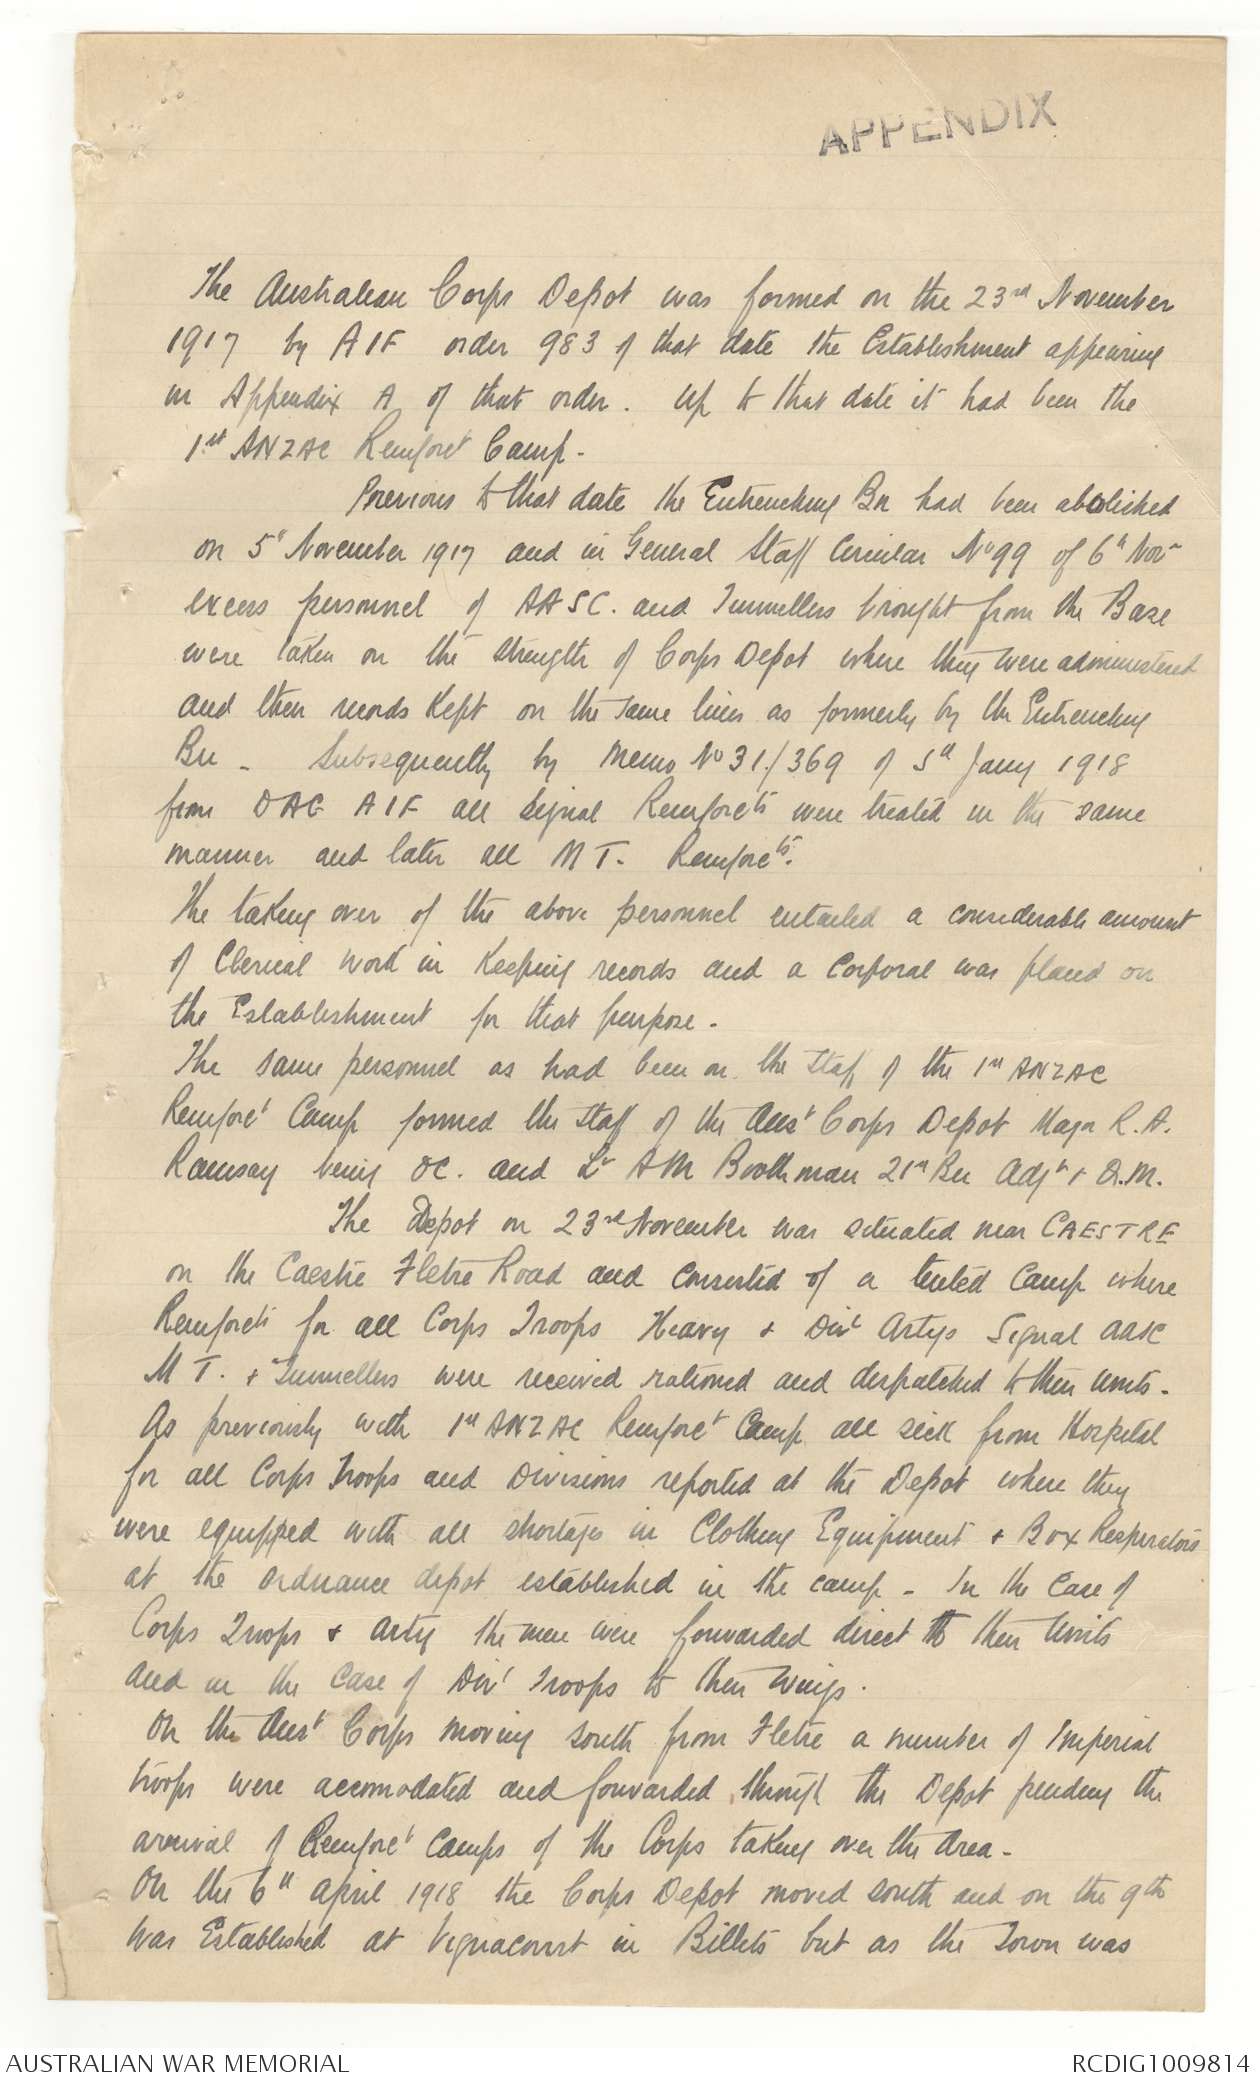 APPENDIX
The Australian Corps Depot was formed on the 23rd November
1917 by AIF order 983 of that date the Establishment appearing
in Appendix A of that order. Up to that date it had been the
1st ANZAC Reinforct Camp.
Previous to that date the Entrenching Bn had been abolished
on 5th November 1917 and in General Staff Circular No 99 of 6th Nov
excess personnel of AASC. and Tunnellers brought from the Base
were taken on the strength of Corps Depot where they were administered
and their records kept on the same lines as formerly by the Entrenching
Bn - Subsequently by Memo No 31/369 of 5th Jany 1918
from DAG AIF all Signal Reinforcts were treated in the same
manner and later all MT. Reinforcts.
The taking over of the above personnel entailed a considerable amount
of Clerical work in keeping records and a Corporal was placed on
the Establishment for that purpose.
The same personnel as had been on the Staff of the 1st ANZAC
Reinforct Camp formed the Staff of the Aust Corps Depot Major R.A.
Ramsay being OC. and Lt AM Boothman 21st Bn Adjt & Q.M.
The Depot on 23rd November was situated near CAESTRE
on the Caestre Fletre Road and consisted of a tented Camp where
Reinforcts for all Corps Troops Heavy & Divl Artys Signal AASC
MT. & Tunnellers were received rationed and despatched to their units.
As previously with 1st ANZAC Reinforct Camp all sick from Hospital
for all Corps Troops and Divisions reported at the Depot where they
were equipped with all shortages in Clothing Equipment & Box Respirators
at the ordnance depot established in the camp - In the case of
Corps Troops & Arty the men were forwarded direct to their Units
and in the case of Divl Troops to their Wings.
On the Aust Corps moving south from Fletre a number of Imperial
troops were accomodated and forwarded through the Depot pending the
arrival of Reinforct Camps of the Corps taking over the Area -
On the 6th April 1918 the Corps Depot moved south and on the 9th
was Established at Vignacourt in Billets but as the Town was
AUSTRALIAN WAR MEMORIAL
RCDIG1009814